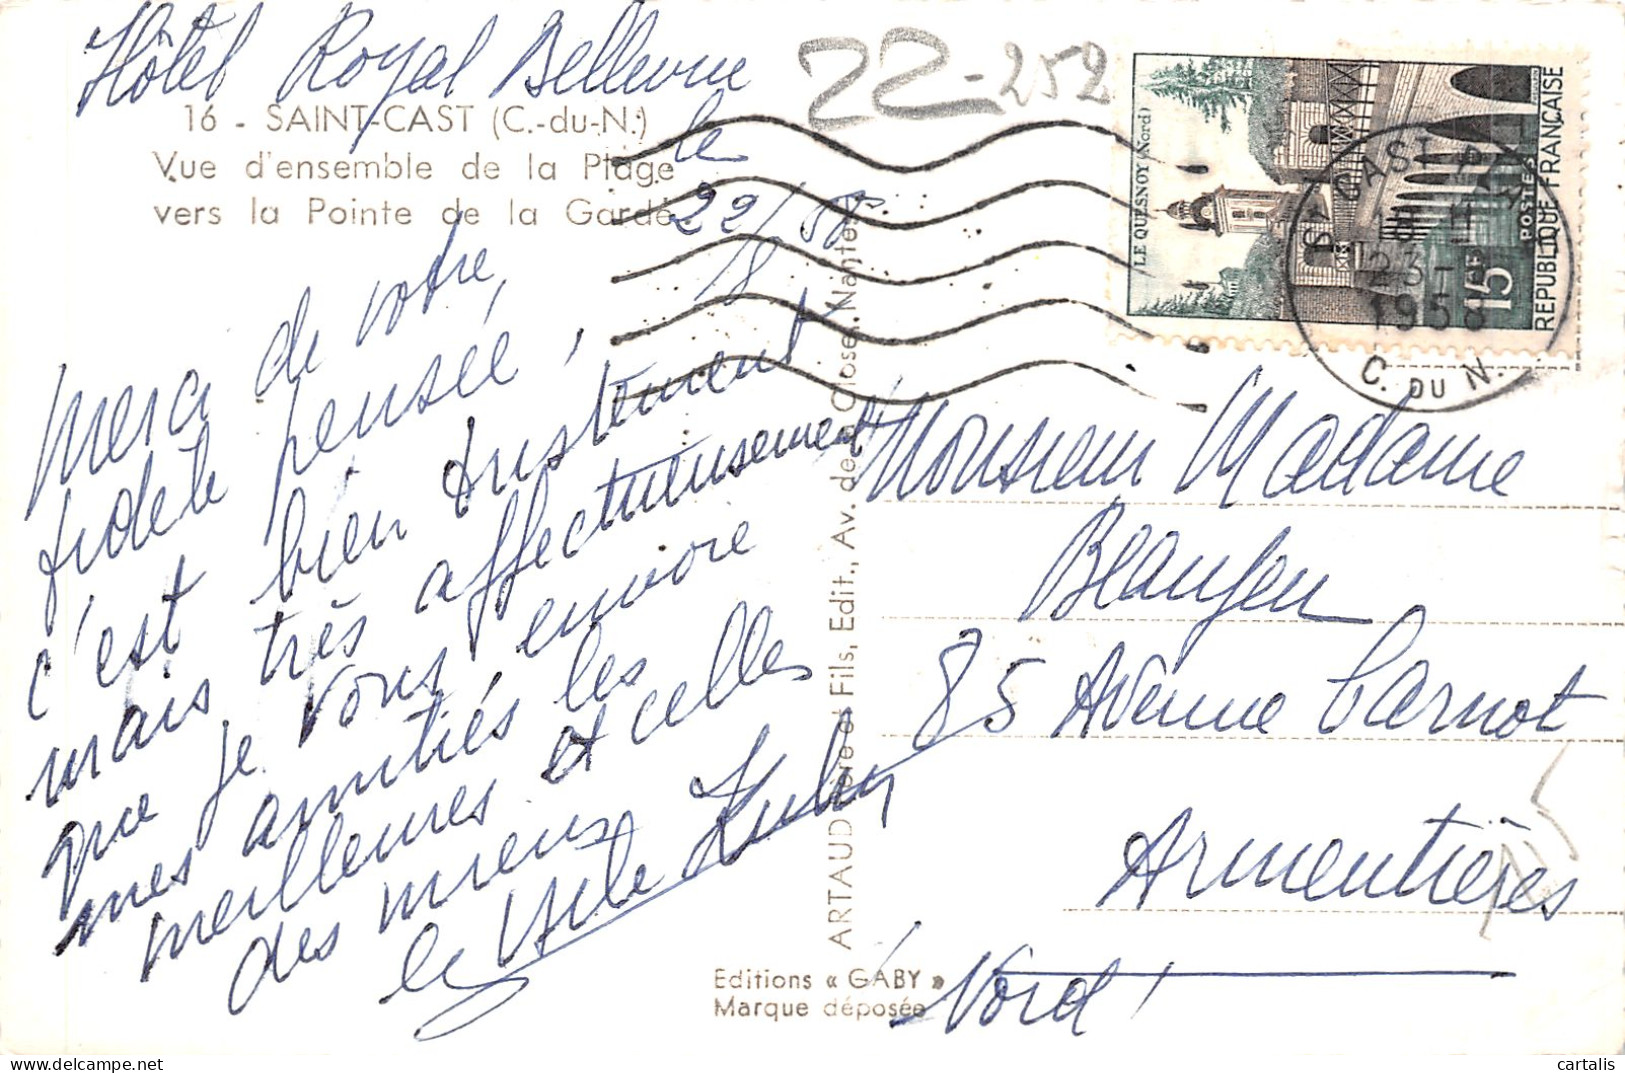 Hôtel Royal Bellevue
16 - SAINT-CAST (C.-du-N.)
Vue d'ensemble de la Plage
vers la Pointe de la Garde
le
22/8 58
Merci de votre
fidèle pensée,
c'est bien tristement
mais très affectueusement
que je vous envoie
mes amitiés les
meilleures et celles
des miens
22-252
LE QUESNOY (Nord)
POSTES
15F
REPUBLIQUE FRANÇAISE
St CAST
23-
1958
C. DU N.
Monsieur Madame
Beaufeu
85 Avenue Carnot
Armentières
Nord
ARTAUD Père et Fils, Edit., Av. de la Close, Nantes
Editions « GABY »
Marque déposée
cartalis